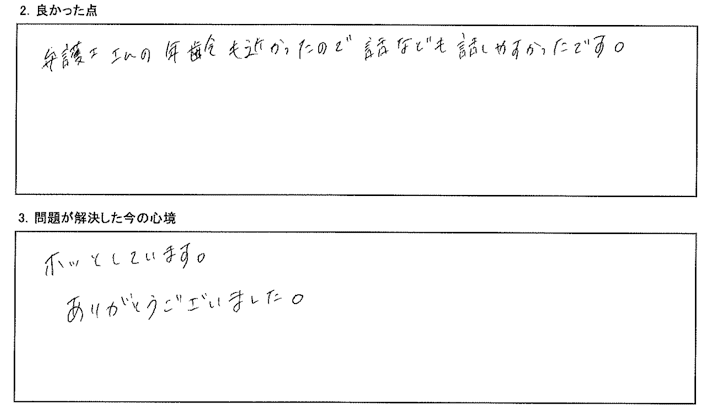 2. 良かった点
弁護士さんの年齢も近かったので話なども話しやすかったです。
3. 問題が解決した今の心境
ホッとしています。
ありがとうございました。